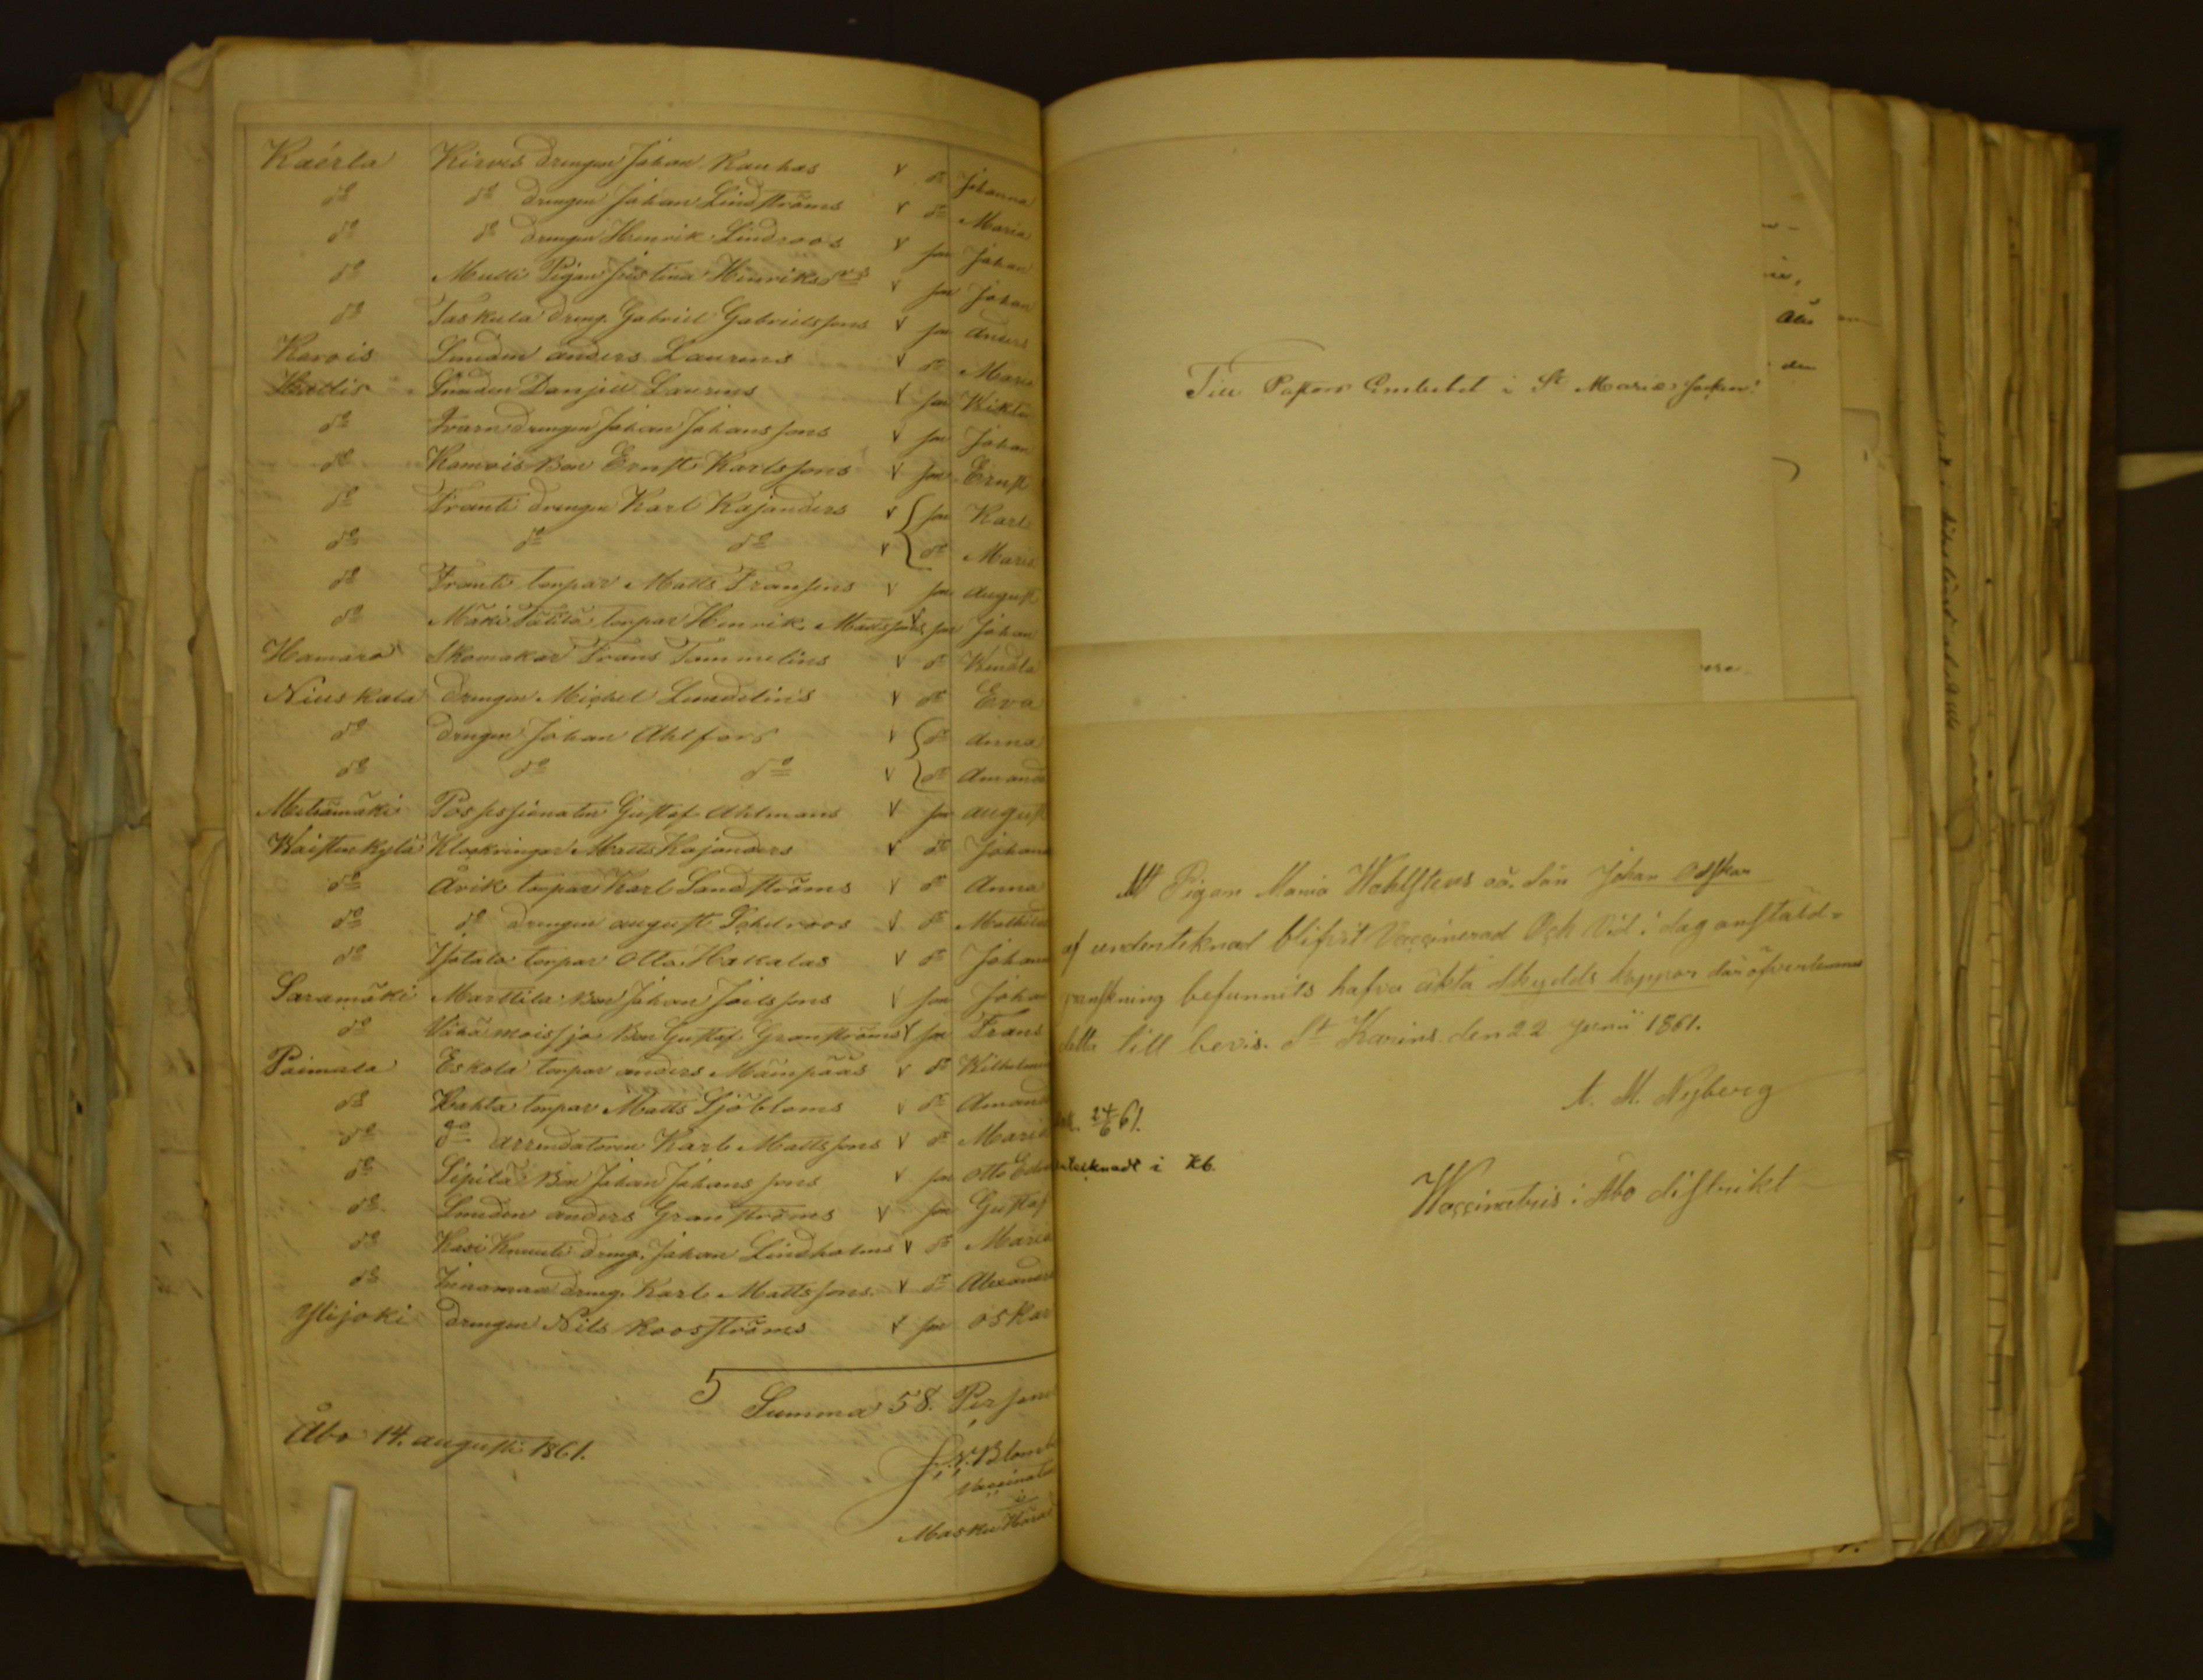 Kaérla Kirves Drengen Johan Rauhas v dr Johanna
do do Drengen Johan Lindströms v dr Maria
do do Drengen Henrik Lindroos v son Johan
do Mulli Pigan Justina Henriksdrs v son Johan
do Taskula Dreng. Gabriel Gabrielssons v son Anders
Karvis Smeden Anders Laurens v dr Maria
Smeden Danjiel Laurens v son Wiktor
do Drengen Johan Johanssons v son Johan
do Bon Ernst Karlssons v son Ernst
do Franti Drengen Karl Kajanders v son Karl
do do do v dr Maria
do Franti torpar Matts Fransens v son August
do Mäki torpar Henrik Mattssons v son Johan
Hamaro Skomakar Frans Tammelins v dr Wendla
Niuskala Drengen Michel Lundelins v dr Eva
do Drengen Johan Ahlfors v dr Anna
do do do v dr Amanda
Metsämäki Possessionaten Gustaf Ahlmans v son August
Waistenkylä Klockringar Matts Kajanders v dr Johana
do Ävik torpar Karl Sandströms v dr Anna
do do Drengen August v dr Mathilda
do Isotalo torpar Otto Hakalas v dr Johanna
Saramäki Marttila Bon Johan v son Johan
do Bon Gustaf Granströms v son Frans
Paimala Eskola torpar Anders Mäinpääs v dr Wilhelmina
do Kahta torpar Matts Sjöbloms v dr Amanda
do do Arrendatoren Karl Mattssons v dr Maria
do Sipilä Bon Johan Johanssons v son Otto
do Smeden Anders Granströms v son Gustaf
do Kasi Knuuti Dreng. Johan Lindholms v dr Maria
do Dreng. Karl Mattssons v dr Alexandra
Ylijoki Drengen Nils Roosströms v son Oskar
Summa 58. Person
Åbo 14. Augusti 1861.
Masku Härad
Till Pastors Embetet i St Mariæ Socken!
Att Pigan Maria Wahlstens oä. Son Johan Oskar
af undenteknad blifvit Vaccinerad Och Vid i dag anstäld
granskning befunnits hafva äkta skydds koppor
detta till bevis. St Karins den 22 Junii 1861.
A. M. Nyberg
Vaccinatris i Åbo distrikt
24/6 61.
antecknadt i Kb.